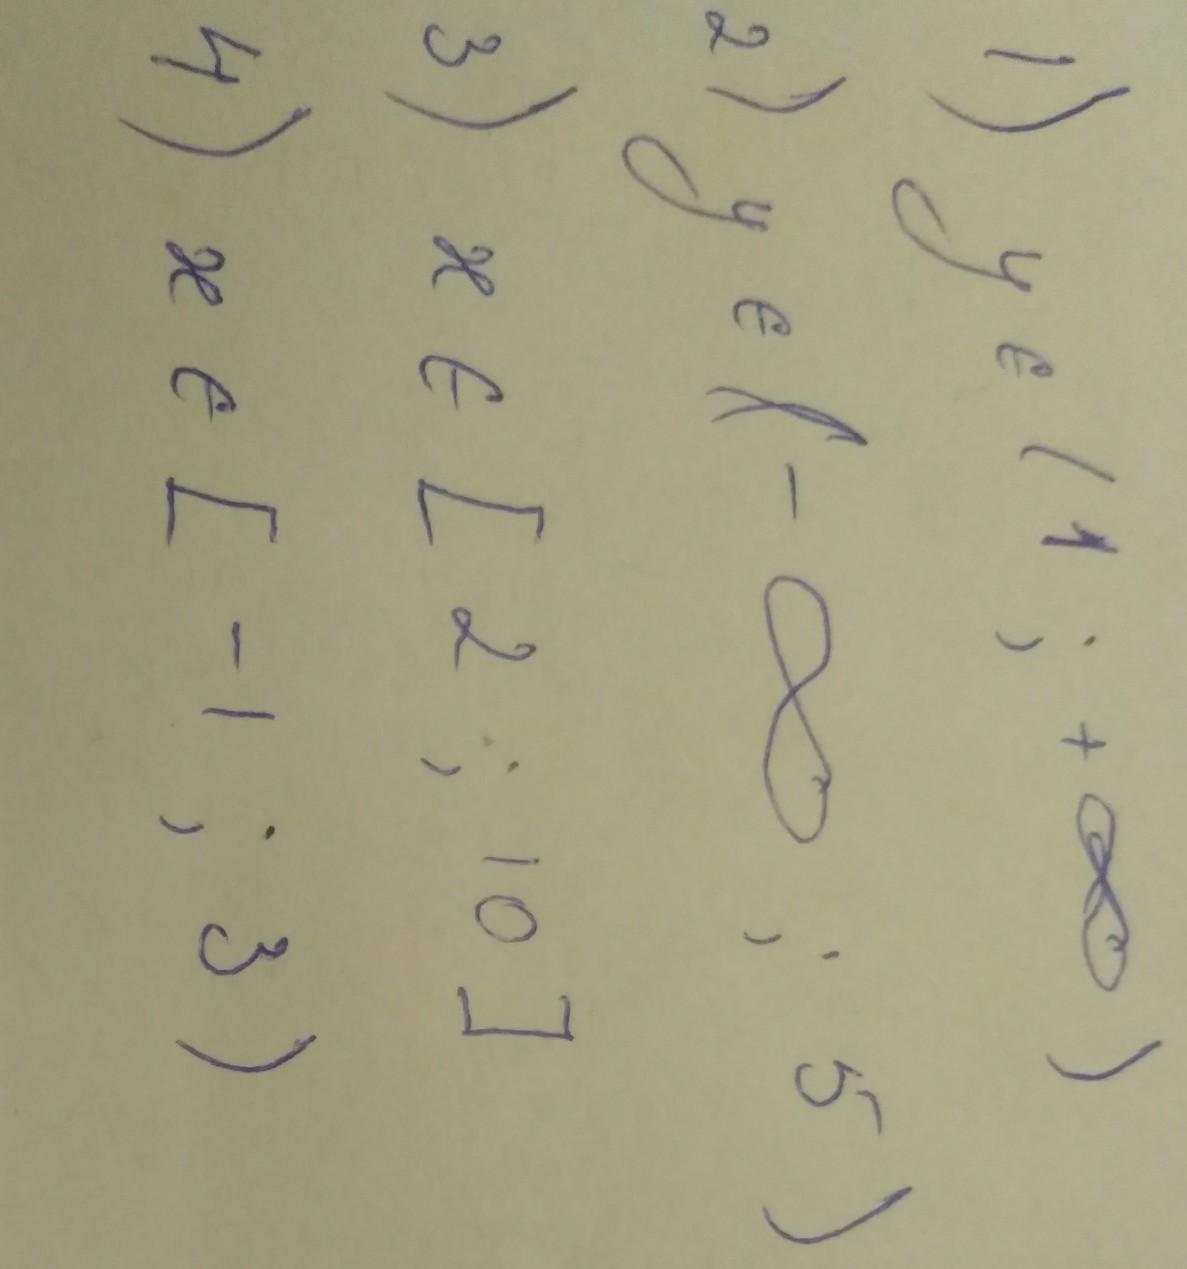 1) y ∈ (1 ; +∞)
2) y ∈ (-∞ ; 5)
3) x ∈ [2 ; 10]
4) x ∈ [-1 ; 3)